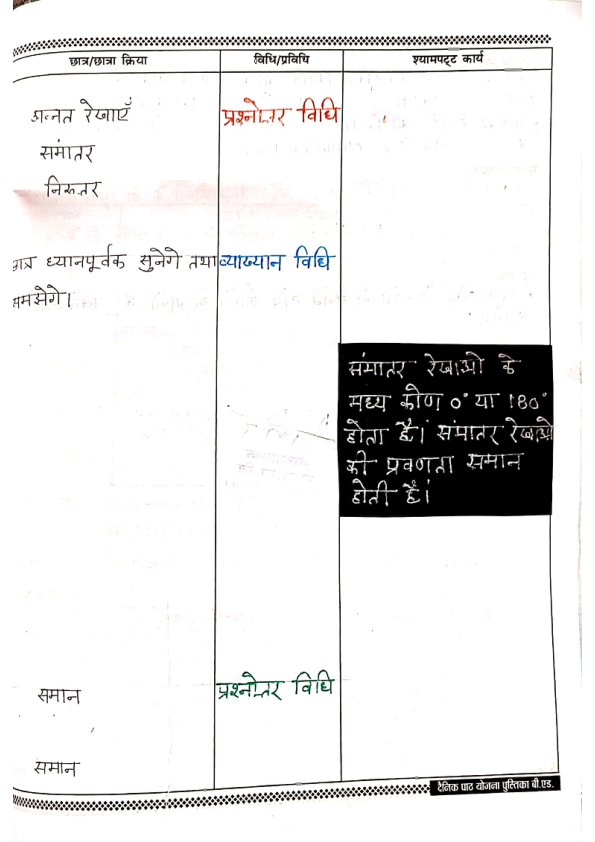 छात्र/छात्रा क्रिया
विधि/प्रविधि
श्यामपट्ट कार्य
अन्नत रेखाएँ
प्रश्नोत्तर विधि
संमातर
निरुत्तर
छात्र ध्यानपूर्वक सुनेगे तथा
व्याख्यान विधि
समझेगे।
संमातर रेखाओ के
मध्य कोण 0° या 180°
होता है। संमातर रेखाओ
की प्रवणता समान
होती है।
समान
प्रश्नोत्तर विधि
समान
दैनिक पाठ योजना पुस्तिका बी.एड.